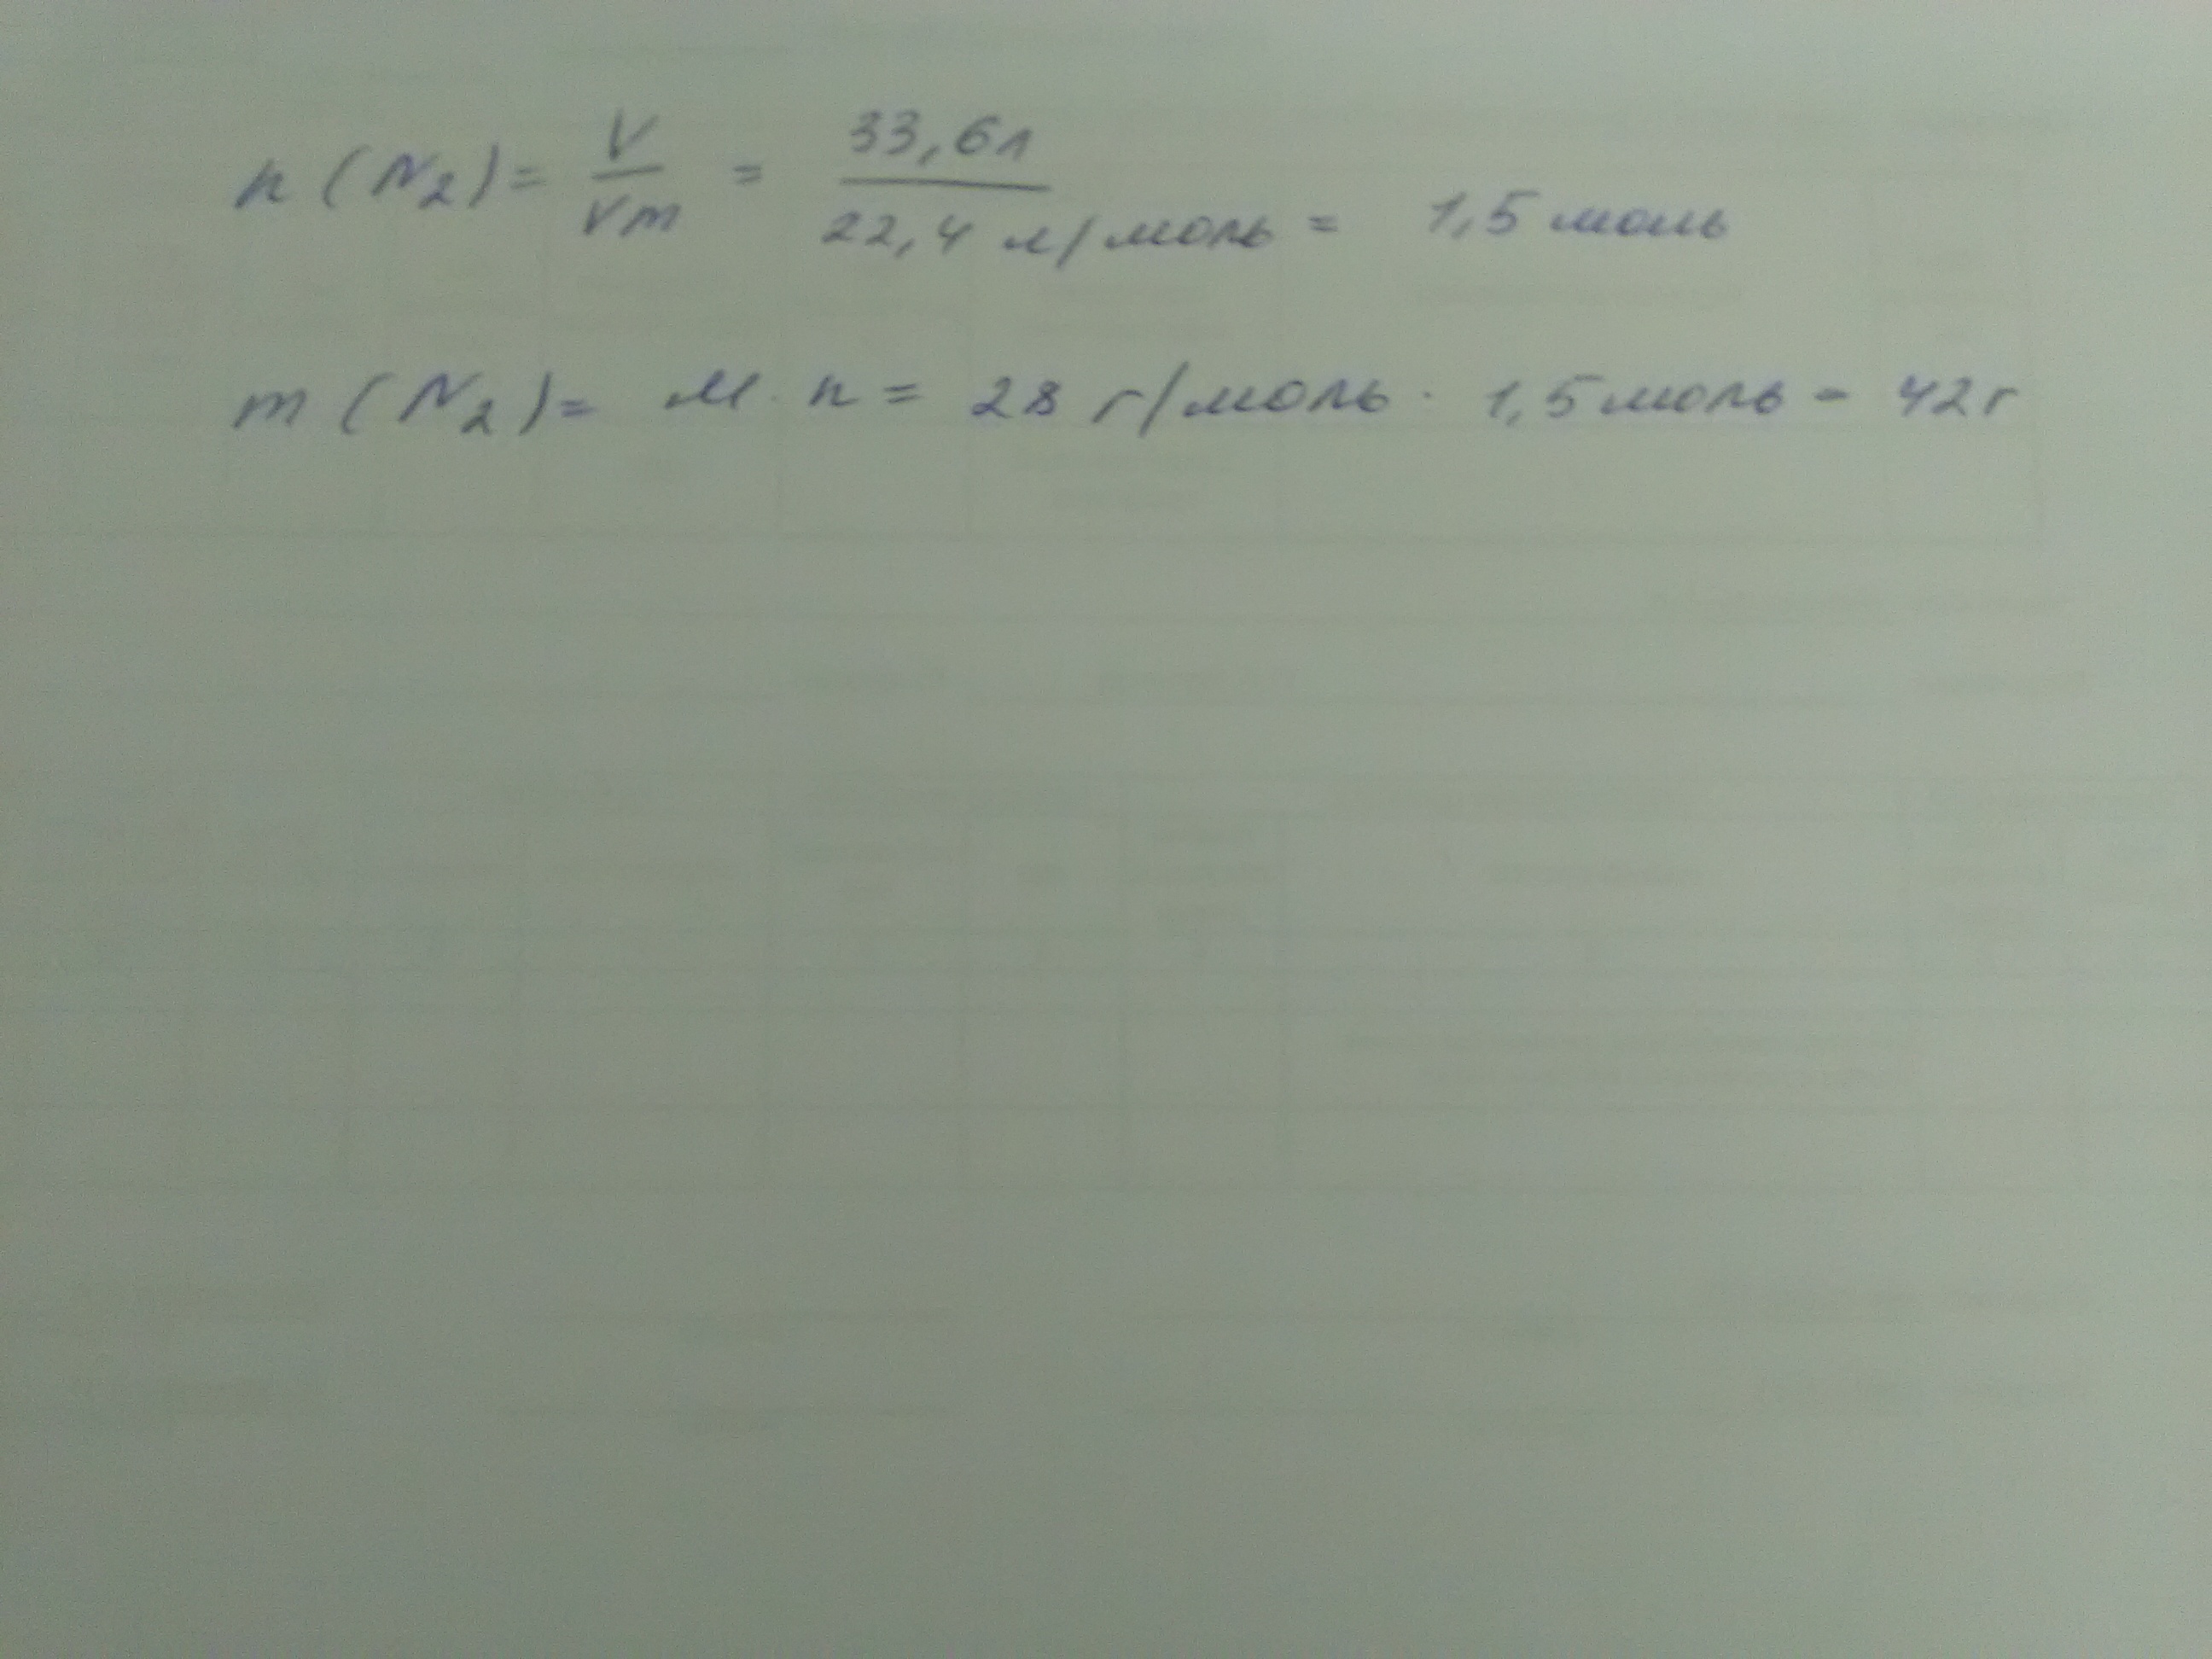 n (N₂) = V/Vm = 33,6л / 22,4 л/моль = 1,5 моль
m (N₂) = M · n = 28 г/моль · 1,5 моль = 42 г